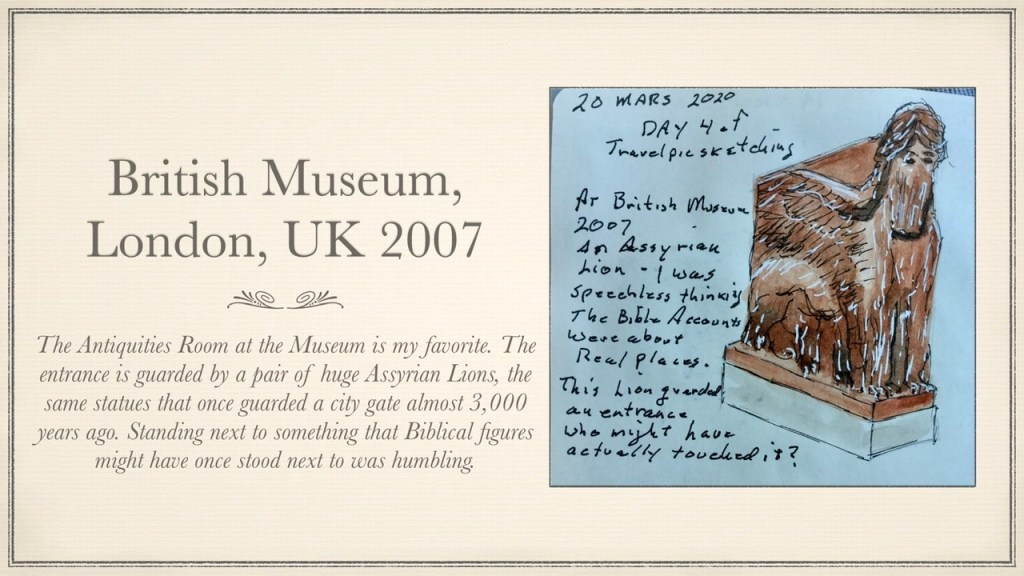 British Museum,
London, UK 2007
The Antiquities Room at the Museum is my favorite. The
entrance is guarded by a pair of huge Assyrian Lions, the
same statues that once guarded a city gate almost 3,000
years ago. Standing next to something that Biblical figures
might have once stood next to was humbling.
20 MARS 2020
DAY 4 of
Travelpicsketching
At British Museum
2007
An Assyrian
Lion - I was
speechless thinking
The Bible Accounts
were about
Real places.
This Lion guarded
an entrance
who might have
actually touched it?